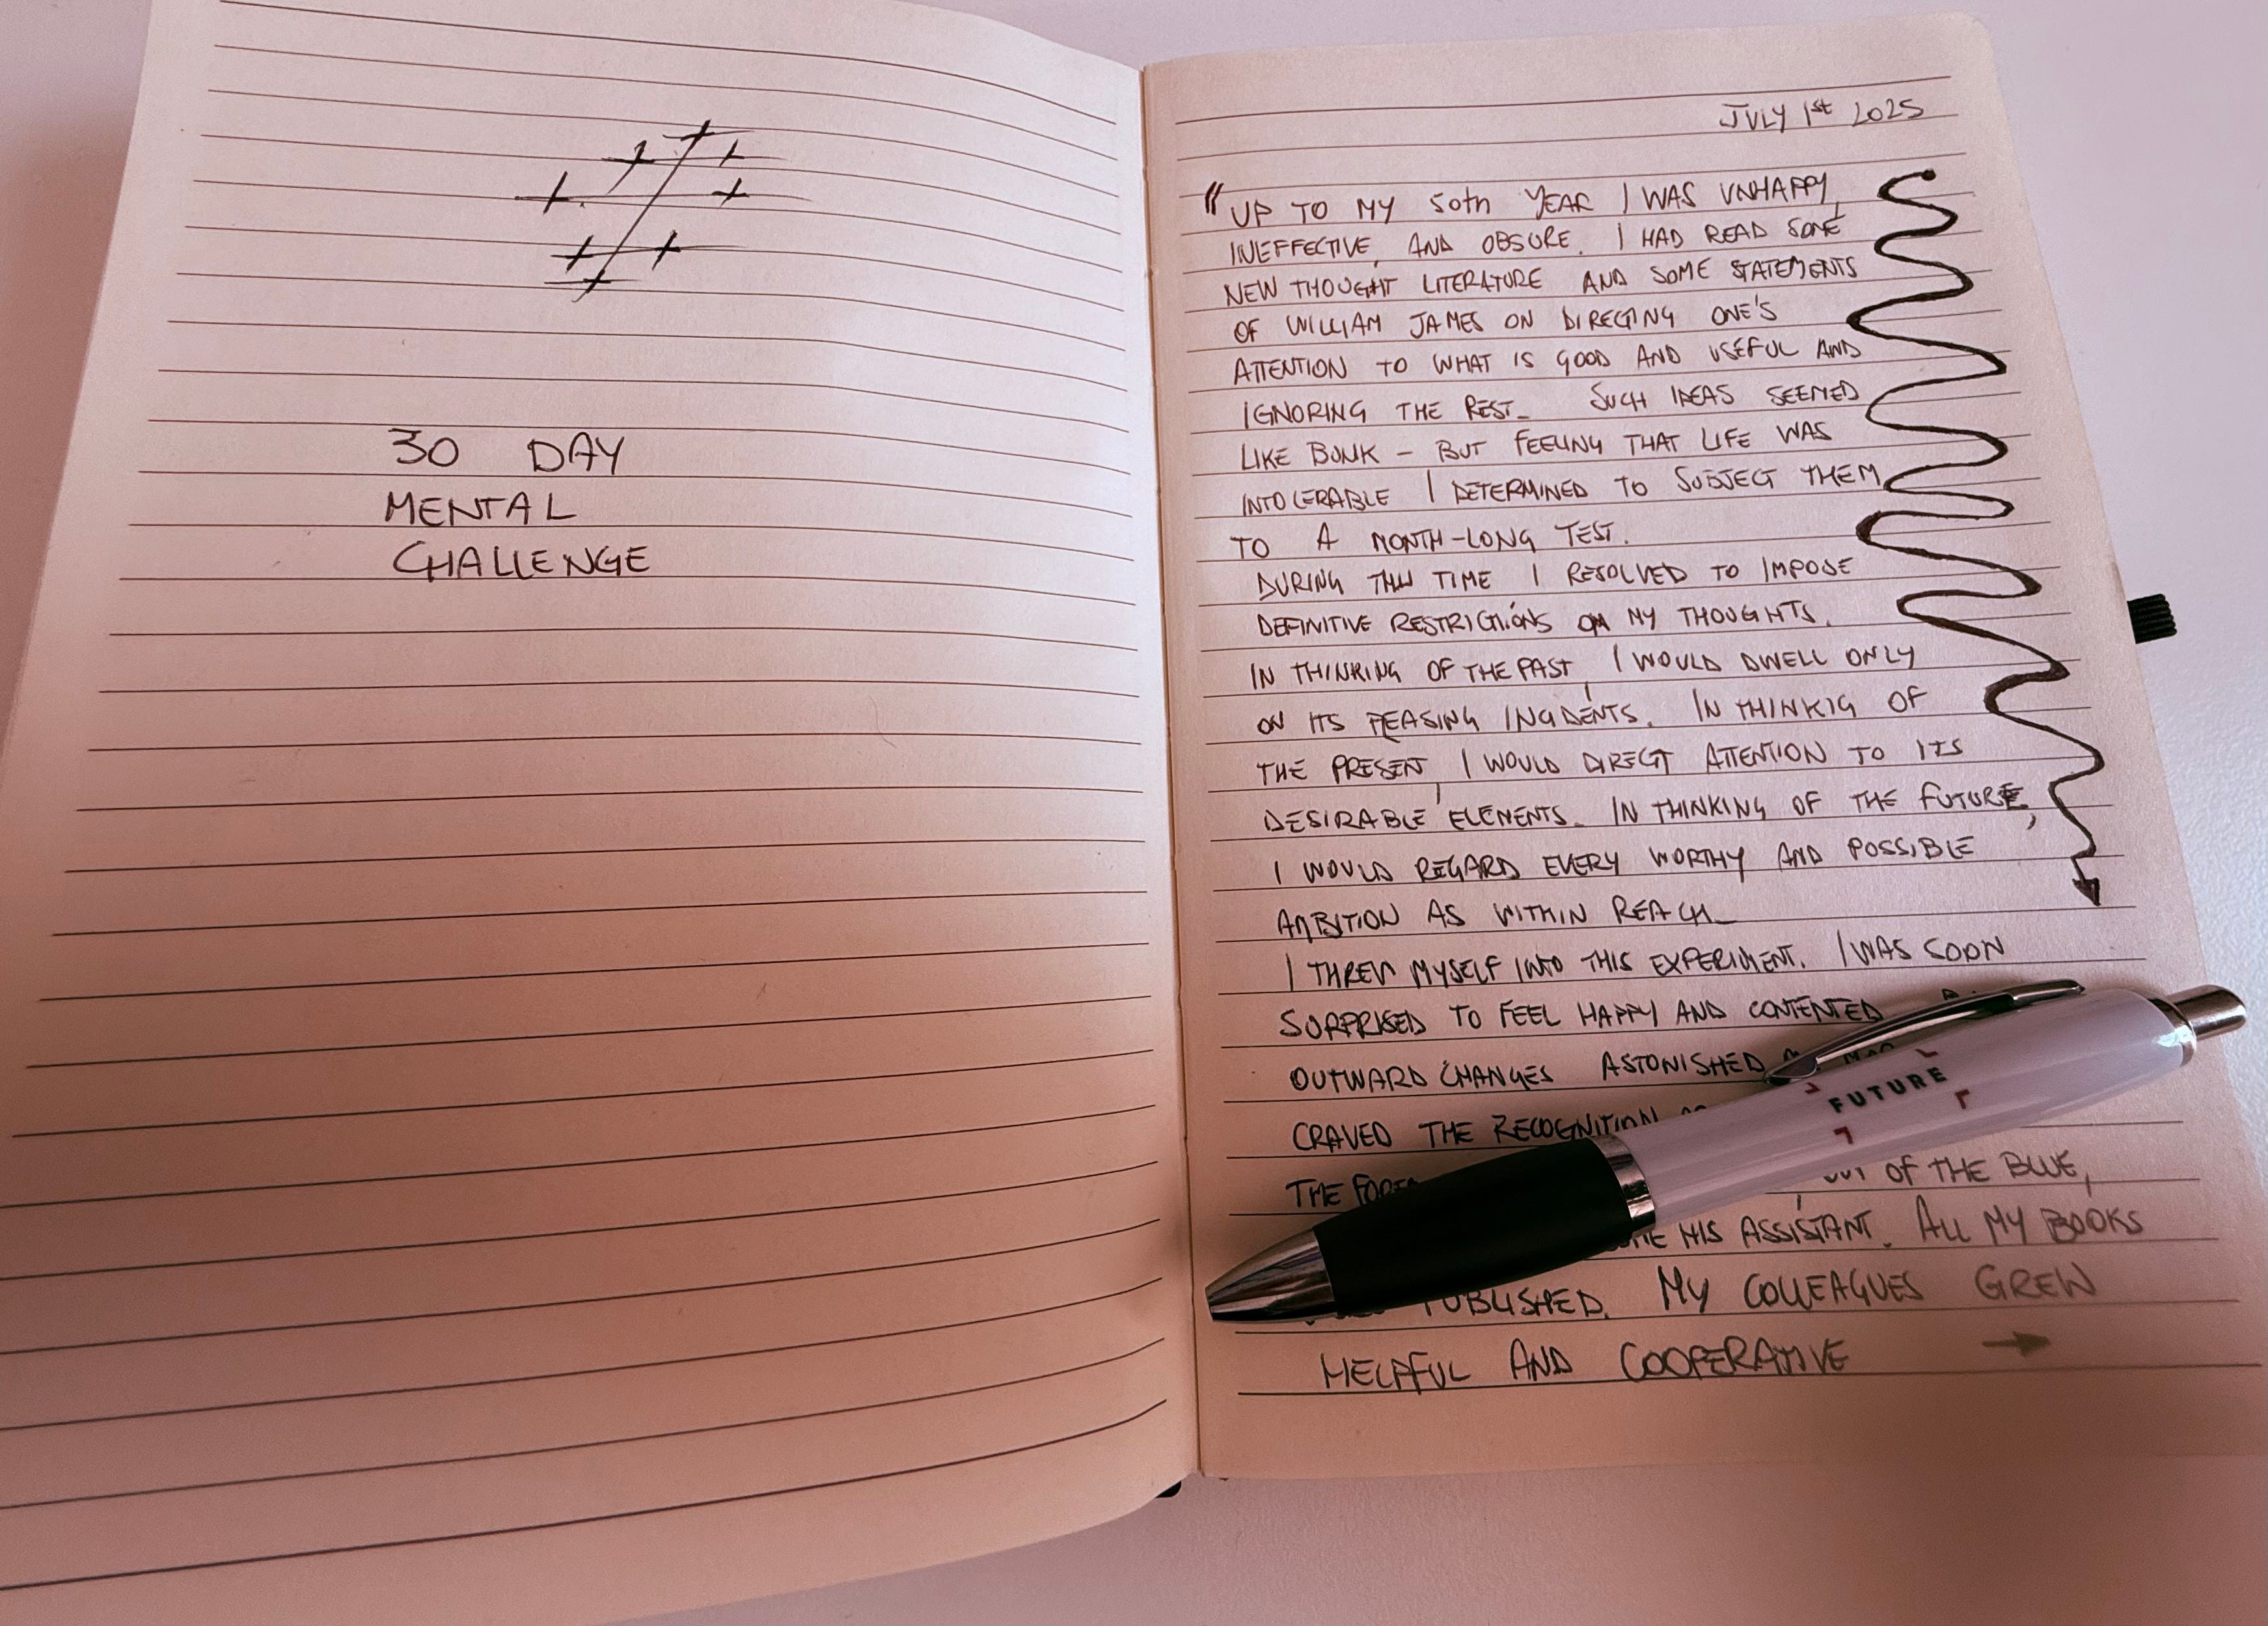 30 DAY
MENTAL
CHALLENGE
JULY 1st 2025
"UP TO MY 50th YEAR I WAS UNHAPPY,
INEFFECTIVE, AND OBSURE. I HAD READ SOME
NEW THOUGHT LITERATURE AND SOME STATEMENTS
OF WILLIAM JAMES ON DIRECTING ONE'S
ATTENTION TO WHAT IS GOOD AND USEFUL AND
IGNORING THE REST. SUCH IDEAS SEEMED
LIKE BUNK - BUT FEELING THAT LIFE WAS
INTOLERABLE I DETERMINED TO SUBJECT THEM
TO A MONTH-LONG TEST.
DURING THIS TIME I RESOLVED TO IMPOSE
DEFINITIVE RESTRICTIONS ON MY THOUGHTS.
IN THINKING OF THE PAST, I WOULD DWELL ONLY
ON ITS PLEASING INCIDENTS. IN THINKIG OF
THE PRESENT, I WOULD DIRECT ATTENTION TO ITS
DESIRABLE ELEMENTS. IN THINKING OF THE FUTURE,
I WOULD REGARD EVERY WORTHY AND POSSIBLE
AMBITION AS WITHIN REACH.
I THREW MYSELF INTO THIS EXPERIMENT. I WAS SOON
SURPRISED TO FEEL HAPPY AND CONTENTED
OUTWARD CHANGES ASTONISHED
CRAVED THE RECOGNITION
THE
OF THE BLUE,
HIS ASSISTANT. ALL MY BOOKS
PUBLISHED. MY COLLEAGUES GREW
HELPFUL AND COOPERATIVE →
FUTURE